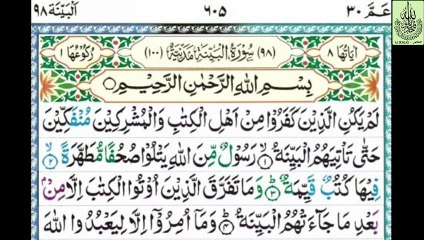 عَمَّ ٣٠ ٦٠٥ اَلْبَيِّنَة ٩٨
اٰيَاتُهَا ٨ (٩٨) سُوْرَةُ الْبَيِّنَةِ مَدَنِيَّةٌ (١٠٠) رُكُوْعُهَا ١
بِسْمِ اللّٰهِ الرَّحْمٰنِ الرَّحِيْمِ
لَمْ يَكُنِ الَّذِيْنَ كَفَرُوْا مِنْ اَهْلِ الْكِتٰبِ وَالْمُشْرِكِيْنَ مُنْفَكِّيْنَ
حَتّٰى تَاْتِيَهُمُ الْبَيِّنَةُ ۙ‏ ١ رَسُوْلٌ مِّنَ اللّٰهِ يَتْلُوْا صُحُفًا مُّطَهَّرَةً ۙ‏ ٢
فِيْهَا كُتُبٌ قَيِّمَةٌ ؕ‏ ٣ وَمَا تَفَرَّقَ الَّذِيْنَ اُوْتُوا الْكِتٰبَ اِلَّا مِنْۢ
بَعْدِ مَا جَآءَتْهُمُ الْبَيِّنَةُ ؕ‏ ٤ وَمَاۤ اُمِرُوْۤا اِلَّا لِيَعْبُدُوا اللّٰهَ